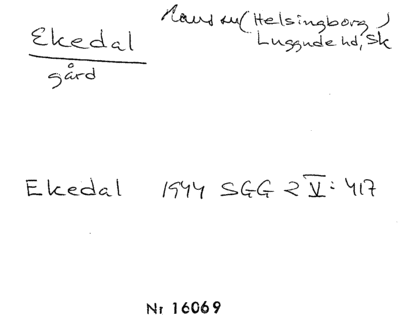 Ekedal
gård
(Helsingborg)
Luggude hd, Sk
Ekedal 1944 SGG 2 V: 417
Nr 16069